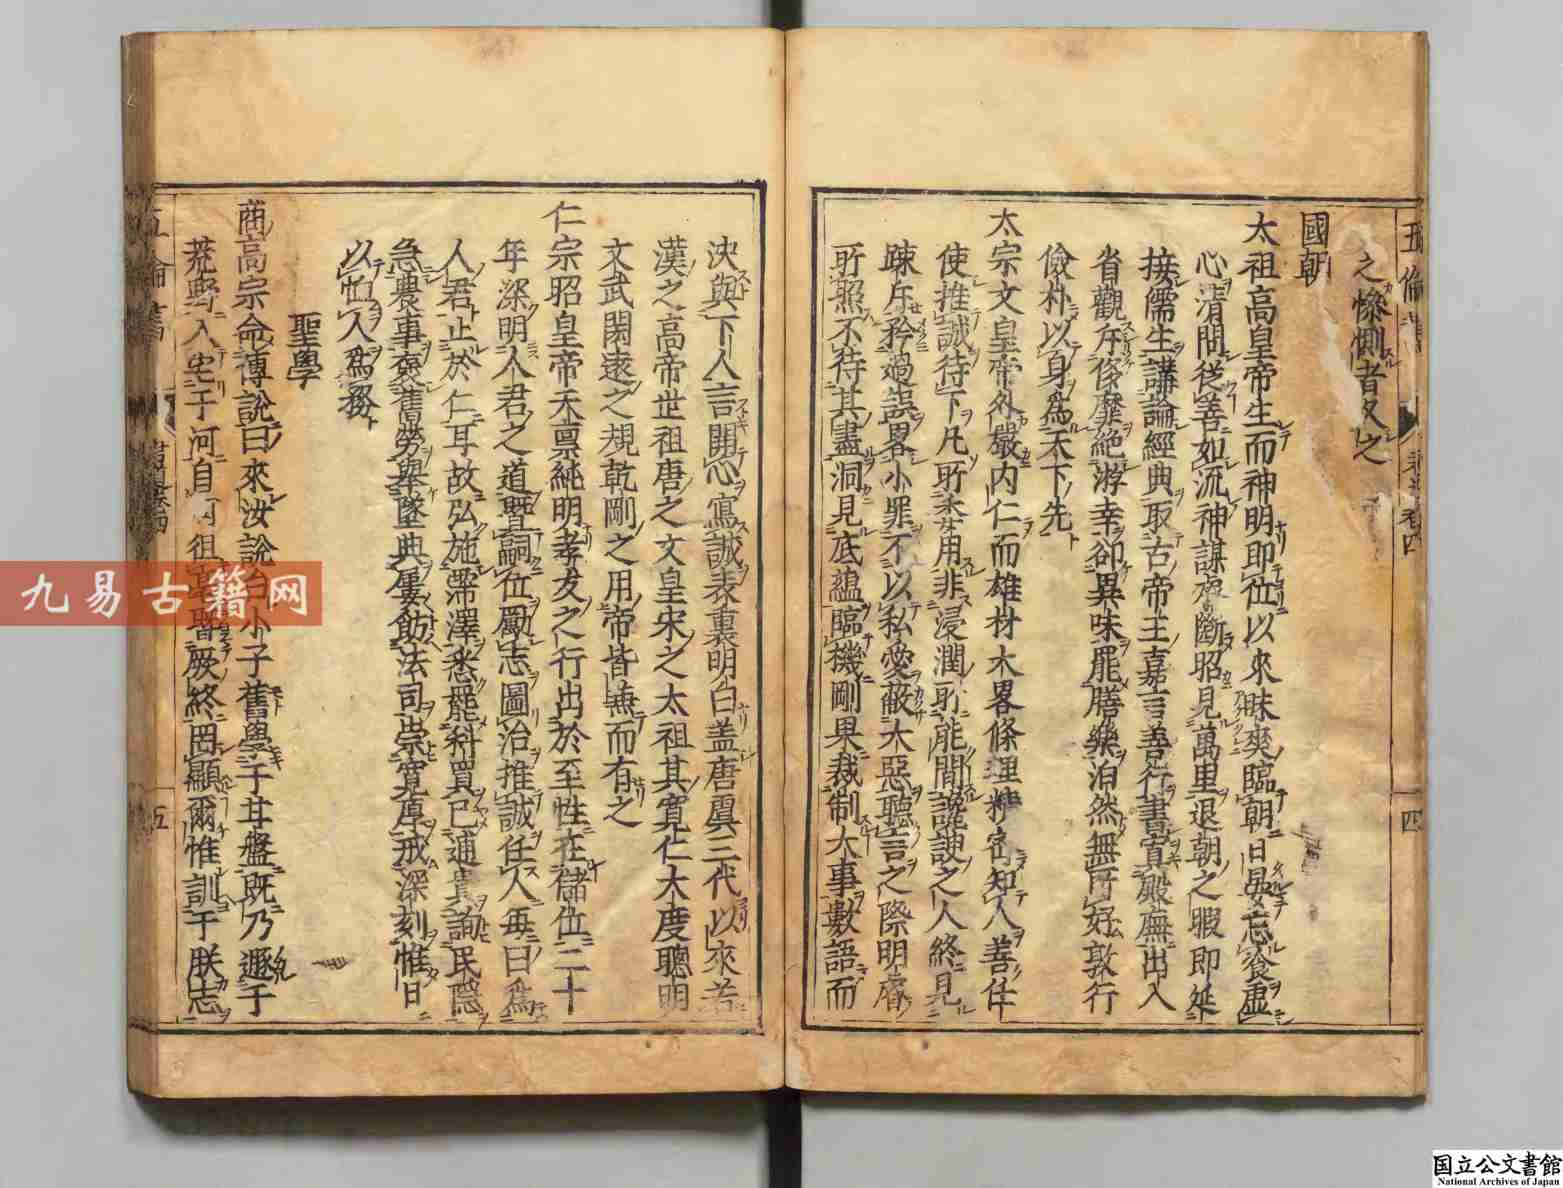 之慘惻者久之
國朝
太祖高皇帝生而神明即位以來昧爽臨朝日晏忘飡虛
心清問從善如流神謀 斷昭見萬里退朝之暇即延
接儒生講論經典取古帝王嘉言善行書寘殿廡出入
省觀斥侈靡絶游幸卻異味罷膳樂泊然無所好敦行
儉朴以身爲天下先
太宗文皇帝外嚴内仁而雄材大畧條理精密知人善任
使推誠待下凡所委用非浸潤所能間讒諛之人終見
疎斥矜過誤畧小罪不以私愛蔽大惡聽言之際明睿
所照不待其盡洞見底蘊臨機剛果裁制大事數語而
決與下人言開心寫誠表裏明白盖唐虞三代以來若
漢之高帝世祖唐之文皇宋之太祖其寬仁大度聰明
文武閎遠之規乾剛之用帝皆兼而有之
仁宗昭皇帝天禀純明孝友之行出於至性在儲位二十
年深明人君之道曁嗣位勵志圖治推誠任人每曰爲
人君止於仁耳故弘施霈澤悉罷科買已逋責詢民隱
急農事褒舊勞舉墜典屢飭法司崇寛厚戒深刻惟日
以恤人爲務
聖學
商高宗命傅說曰來汝說台小子舊學于甘盤既乃遯于
荒野入宅于河自河徂亳曁厥終罔顯爾惟訓于朕志
五倫書
卷四
四
五
九易古籍网
国立公文書館
National Archives of Japan